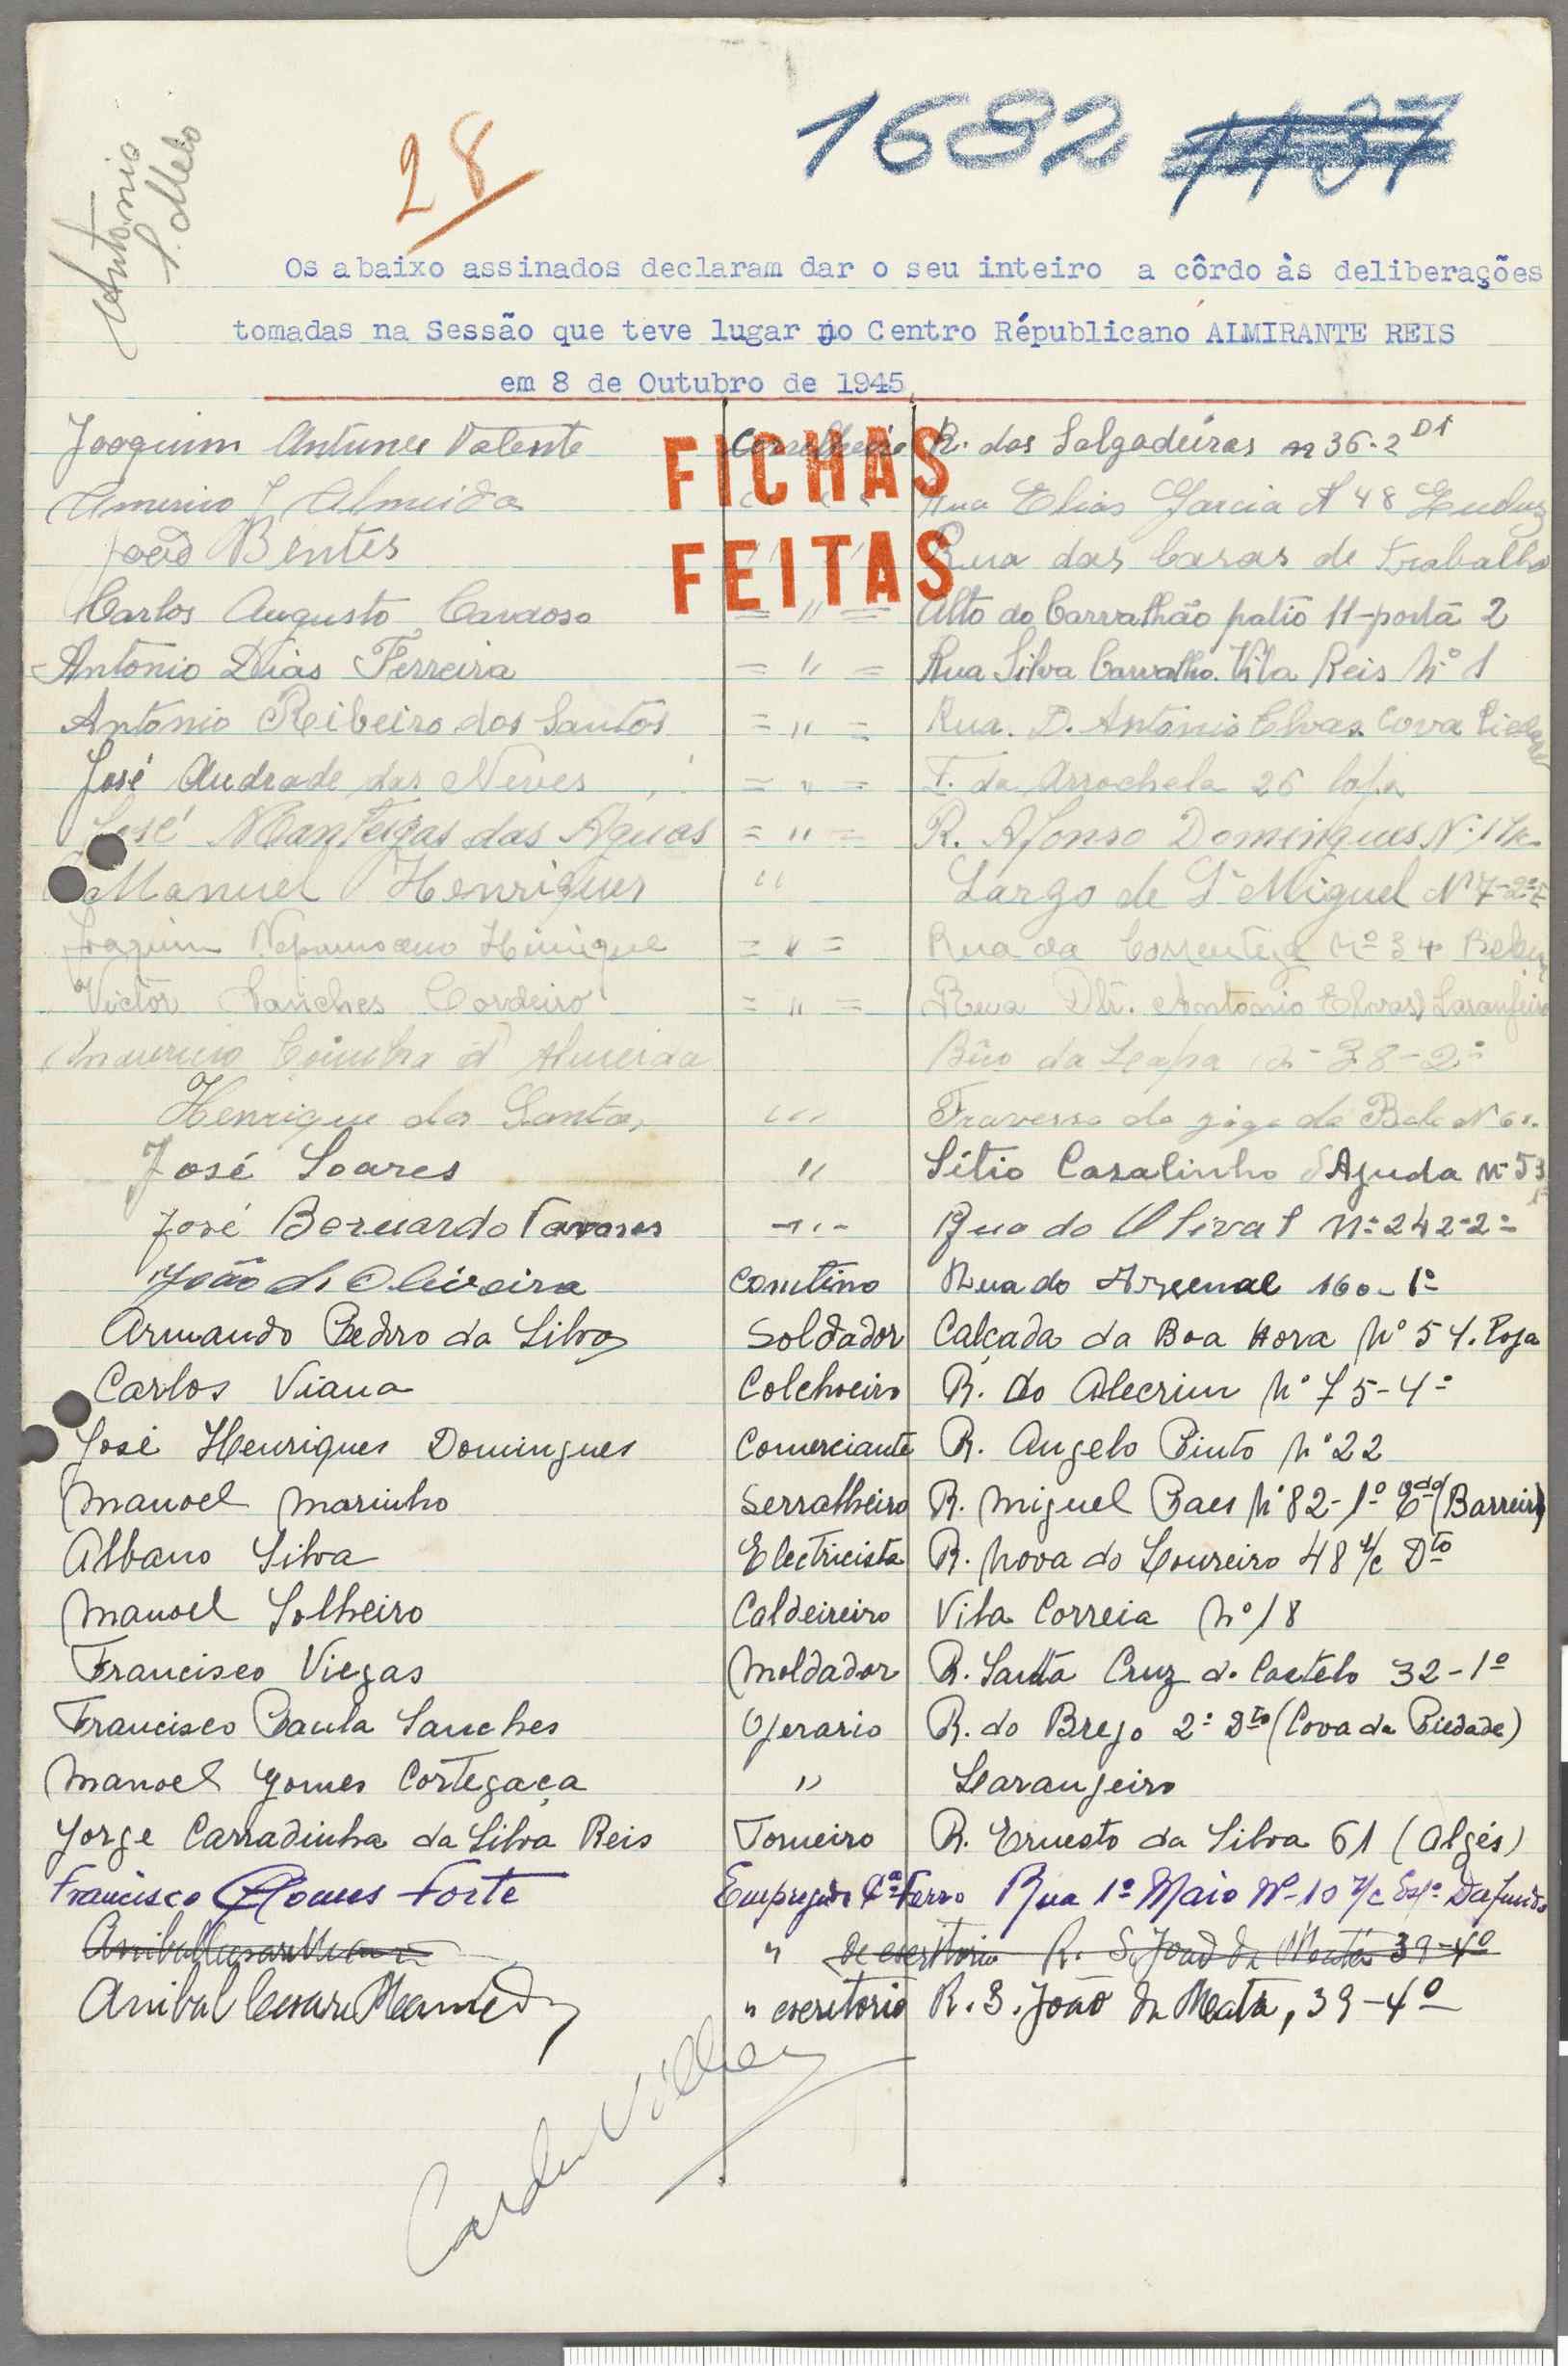 1682 1137
28
Antonio
S. Melo
Os abaixo assinados declaram dar o seu inteiro a côrdo às deliberações
tomadas na Sessão que teve lugar no Centro Républicano ALMIRANTE REIS
em 8 de Outubro de 1945.
FICHAS
FEITAS
Joaquim Antunes Valente R. das Salgadeiras n 36-2 Dt
Almeida Rua Elias Garcia 48
João Bentes " " Rua das Casas de Trabalho
Carlos Augusto Cardoso = " = Alto do Carvalhão patio 11-portã 2
António Dias Ferreira = " = Rua Silva Carvalho Vila Reis Nº 1
António Ribeiro dos Santos = " = Rua. D. António Elvas. Cova
José Andrade das Neves = " = T. da Arrochela 26
José Manteigas das Aguas = " = R. Afonso Domingues Nº
Manuel Henriques " Largo de S. Miguel Nº 7-2º E
Joaquim Nepumoceno Henrique = " = Rua da Nº 34 Belem
Victor Sanches Cordeiro = " = Rua Dtr. Antonio Elvas Laranjeiro
Coimbra d' Almeida da Lapa 38-2º
Henrique dos Santos " Travessa da da
José Soares " Sítio Casalinho d'Ajuda Nº 53
José Bernardo Tavares -"- Rua do Olival Nº 242-2º
João de Oliveira Rua do Arsenal 160-1º
Armando Pedro da Silva Soldador Calçada da Boa Hora Nº 54. Loja
Carlos Viana Colchoeiro R. do Alecrim Nº 75-4º
José Henriques Domingues Comerciante R. Angelo Pinto Nº 22
Manoel Marinho Serralheiro R. Miguel Paes Nº 82-1º Edo (Barreiro)
Albano Silva Electricista R. Nova do Loureiro 48 r/c Dto
Manoel Solheiro Caldeireiro Vila Correia Nº 18
Francisco Viegas Moldador R. Santa Cruz do Castelo 32-1º
Francisco Paula Sanches Operario R. do Brejo 2º Dto (Cova da Piedade)
Manoel Gomes Cortegaça " Laranjeiro
Jorge Carradinha da Silva Reis Torneiro R. Ernesto da Silva 61 (Algés)
Francisco Gomes Forte Empregado Cº Ferro Rua 1º Maio Nº-10 r/c Esqº Dafundo
Anibal Cesar " de escritorio R. S. João da Mata 39-4º
Anibal Cesar Mamede " escritorio R. S. João da Mata, 39-4º